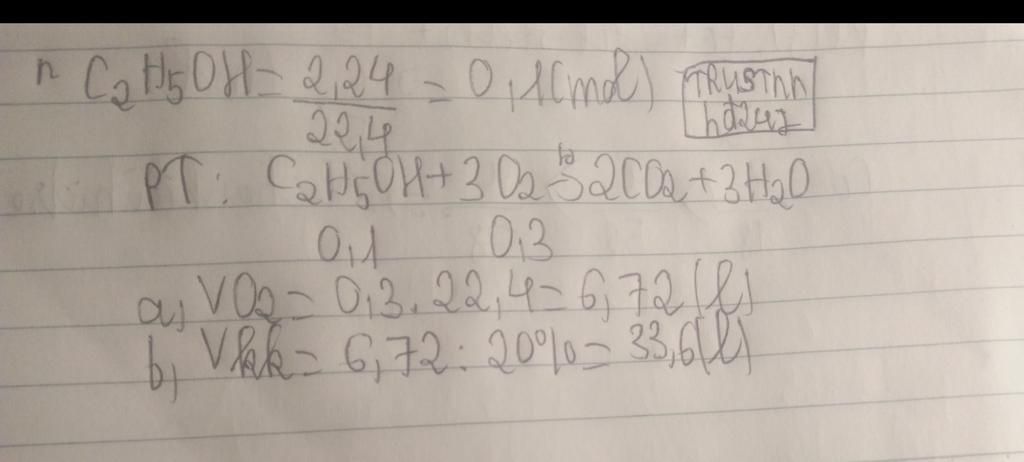 n C₂H₅OH = 2,24/22,4 = 0,1(mol)
TRUSTnn
hd247
PT: C₂H₅OH + 3O₂ →(t°) 2CO₂ + 3H₂O
0,1 0,3
a, VO₂ = 0,3.22,4 = 6,72(l)
b, Vkk = 6,72 : 20% = 33,6(l)